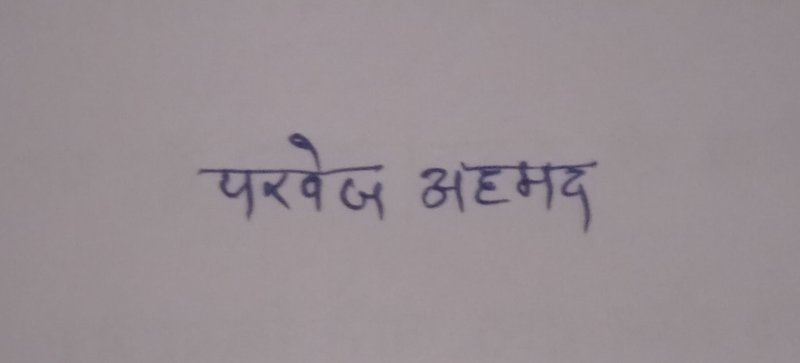 परवेज अहमद